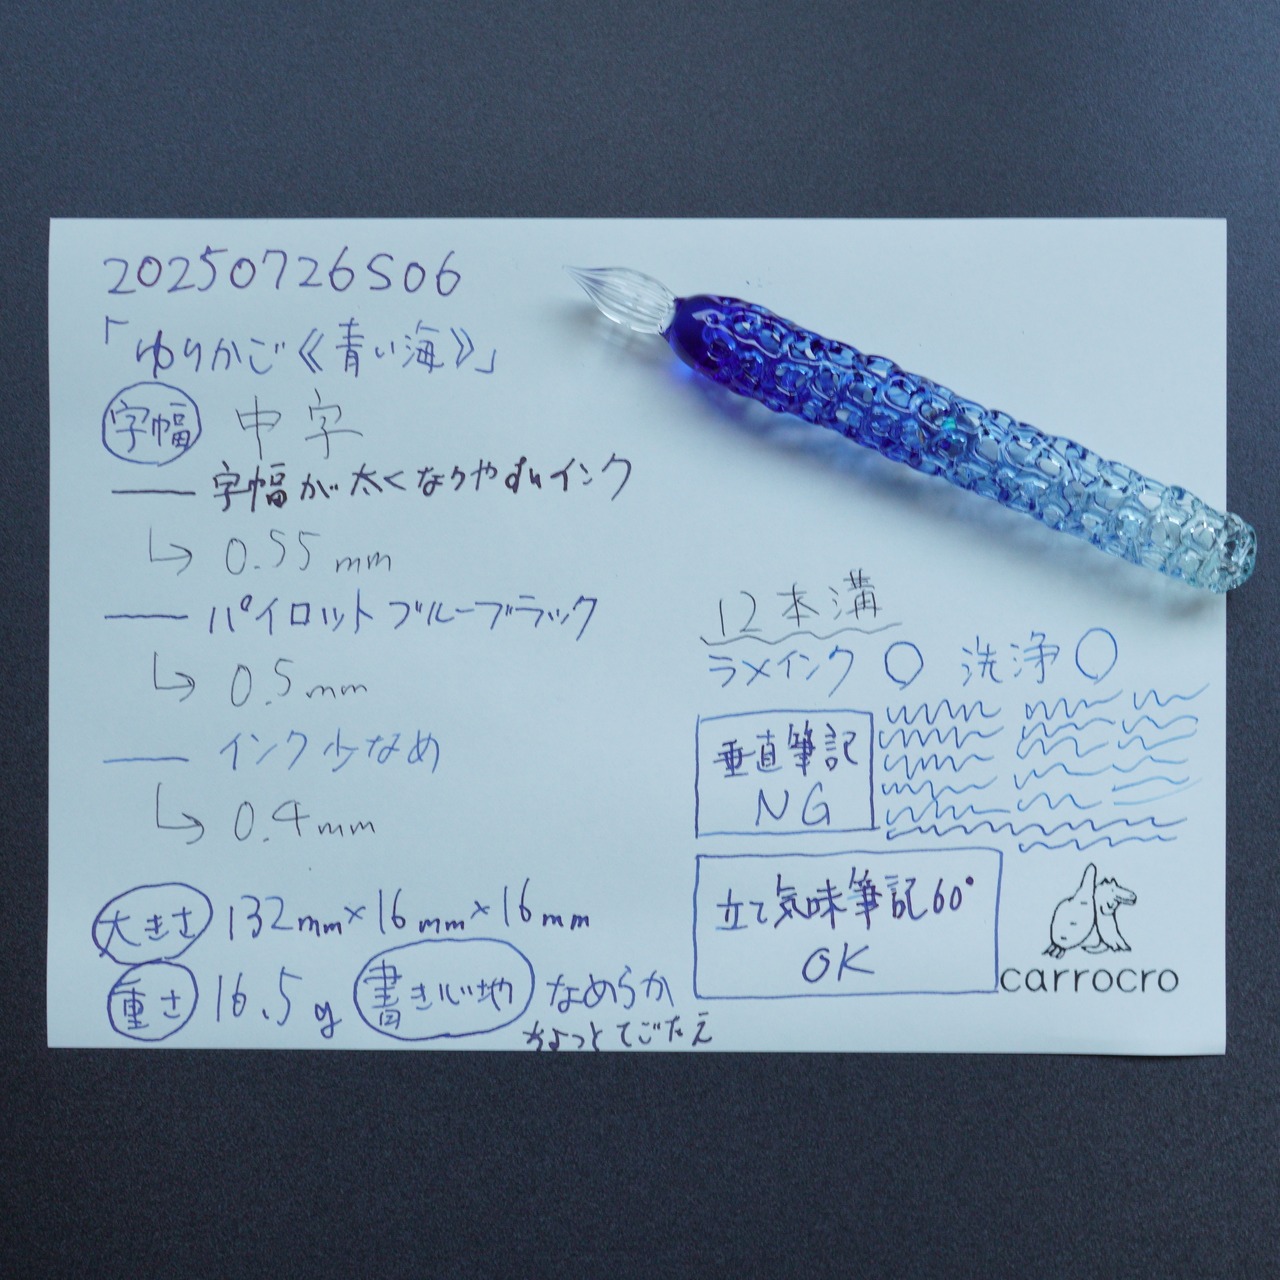 20250726S06
「ゆりかご《青い海》」
字幅 中字
― 字幅が太くなりやすいインク
↳ 0.55mm
― パイロットブルーブラック
↳ 0.5mm
― インク少なめ
↳ 0.4mm
大きさ 132mm×16mm×16mm
重さ 16.5g 書き心地 なめらか
ちょっとてごたえ
12本溝
ラメインク ○ 洗浄 ○
垂直筆記
NG
立て気味筆記60°
OK
carrocro